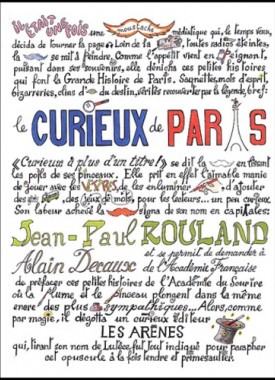 IL ÉTAIT UNE FOIS une moustache médiatique qui, le temps venu,
décida de tourner la page. Loin de la toutes radios éteintes,
la se mit à peindre. Comme l'appétit vient en peignant,
puisant dans ses souvenirs, elle dénicha ces petites histoires
qui font la Grande Histoire de Paris. Saynettes, mots d'esprit,
bizarreries, clins d' du destin, vérités revues par la légende, bref :
le CURIEUX de PARIS
"Curieux à plus d'un titre!" se dit la en tissant
les poils de ses pinceaux. Elle prit en effet l'aimable manie
de jouer avec les de les enluminer, d'ajouter
des des jeux de mots, pour les lecteurs... un peu curieux.
Son labeur achevé la signa de son nom en capitales:
Jean-Paul ROULAND
et se permit de demander à
Alain Decaux de l'Académie Française
de préfacer ces petites histoires de l'Académie du Sourire
où la plume et le pinceau plongent dans la même
encre des plus sympathiques... Alors, comme
par magie, il dégotta un curieux éditeur
LES ARÈNES
qui, tirant son nom de Lutèce, fut tout indiqué pour campher
cet opuscule à la fois tendre et primesautier.